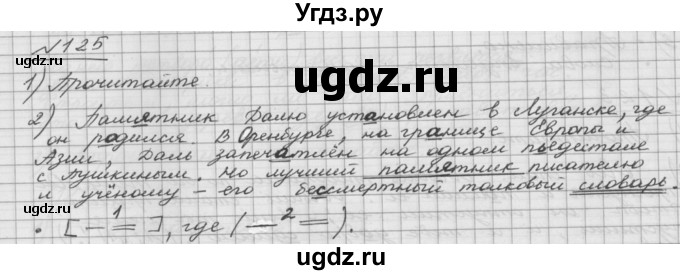 Угдз.ру
№125
1) Прочитайте.
ugdz.ru
ugdz.ru
2) Памятник Далю установлен в Луганске, где
он родился. В Оренбурге, на границе Европы и
Азии, Даль запечатлён на одном пьедестале
с Пушкиным. Но лучший памятник писателю
и учёному – его бессмертный толковый словарь.
ugdz.ru
• [— 1 =], где (— 2 =).
ugdz.ru